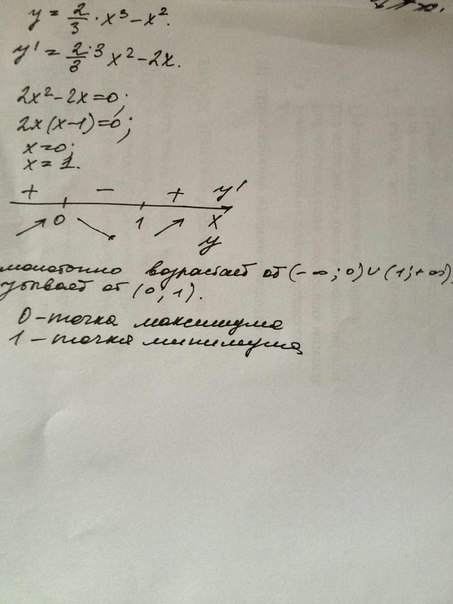 y = 2/3 · x³ – x².
y' = 2·3/3 x² – 2x.
2x² – 2x = 0;
2x(x–1) = 0;
x = 0;
x = 1.
+ – + y'
0 1 x
y
монотонно возрастает от (–∞; 0) ∪ (1; +∞)
убывает от (0; 1).
0 – точка максимума
1 – точка минимума